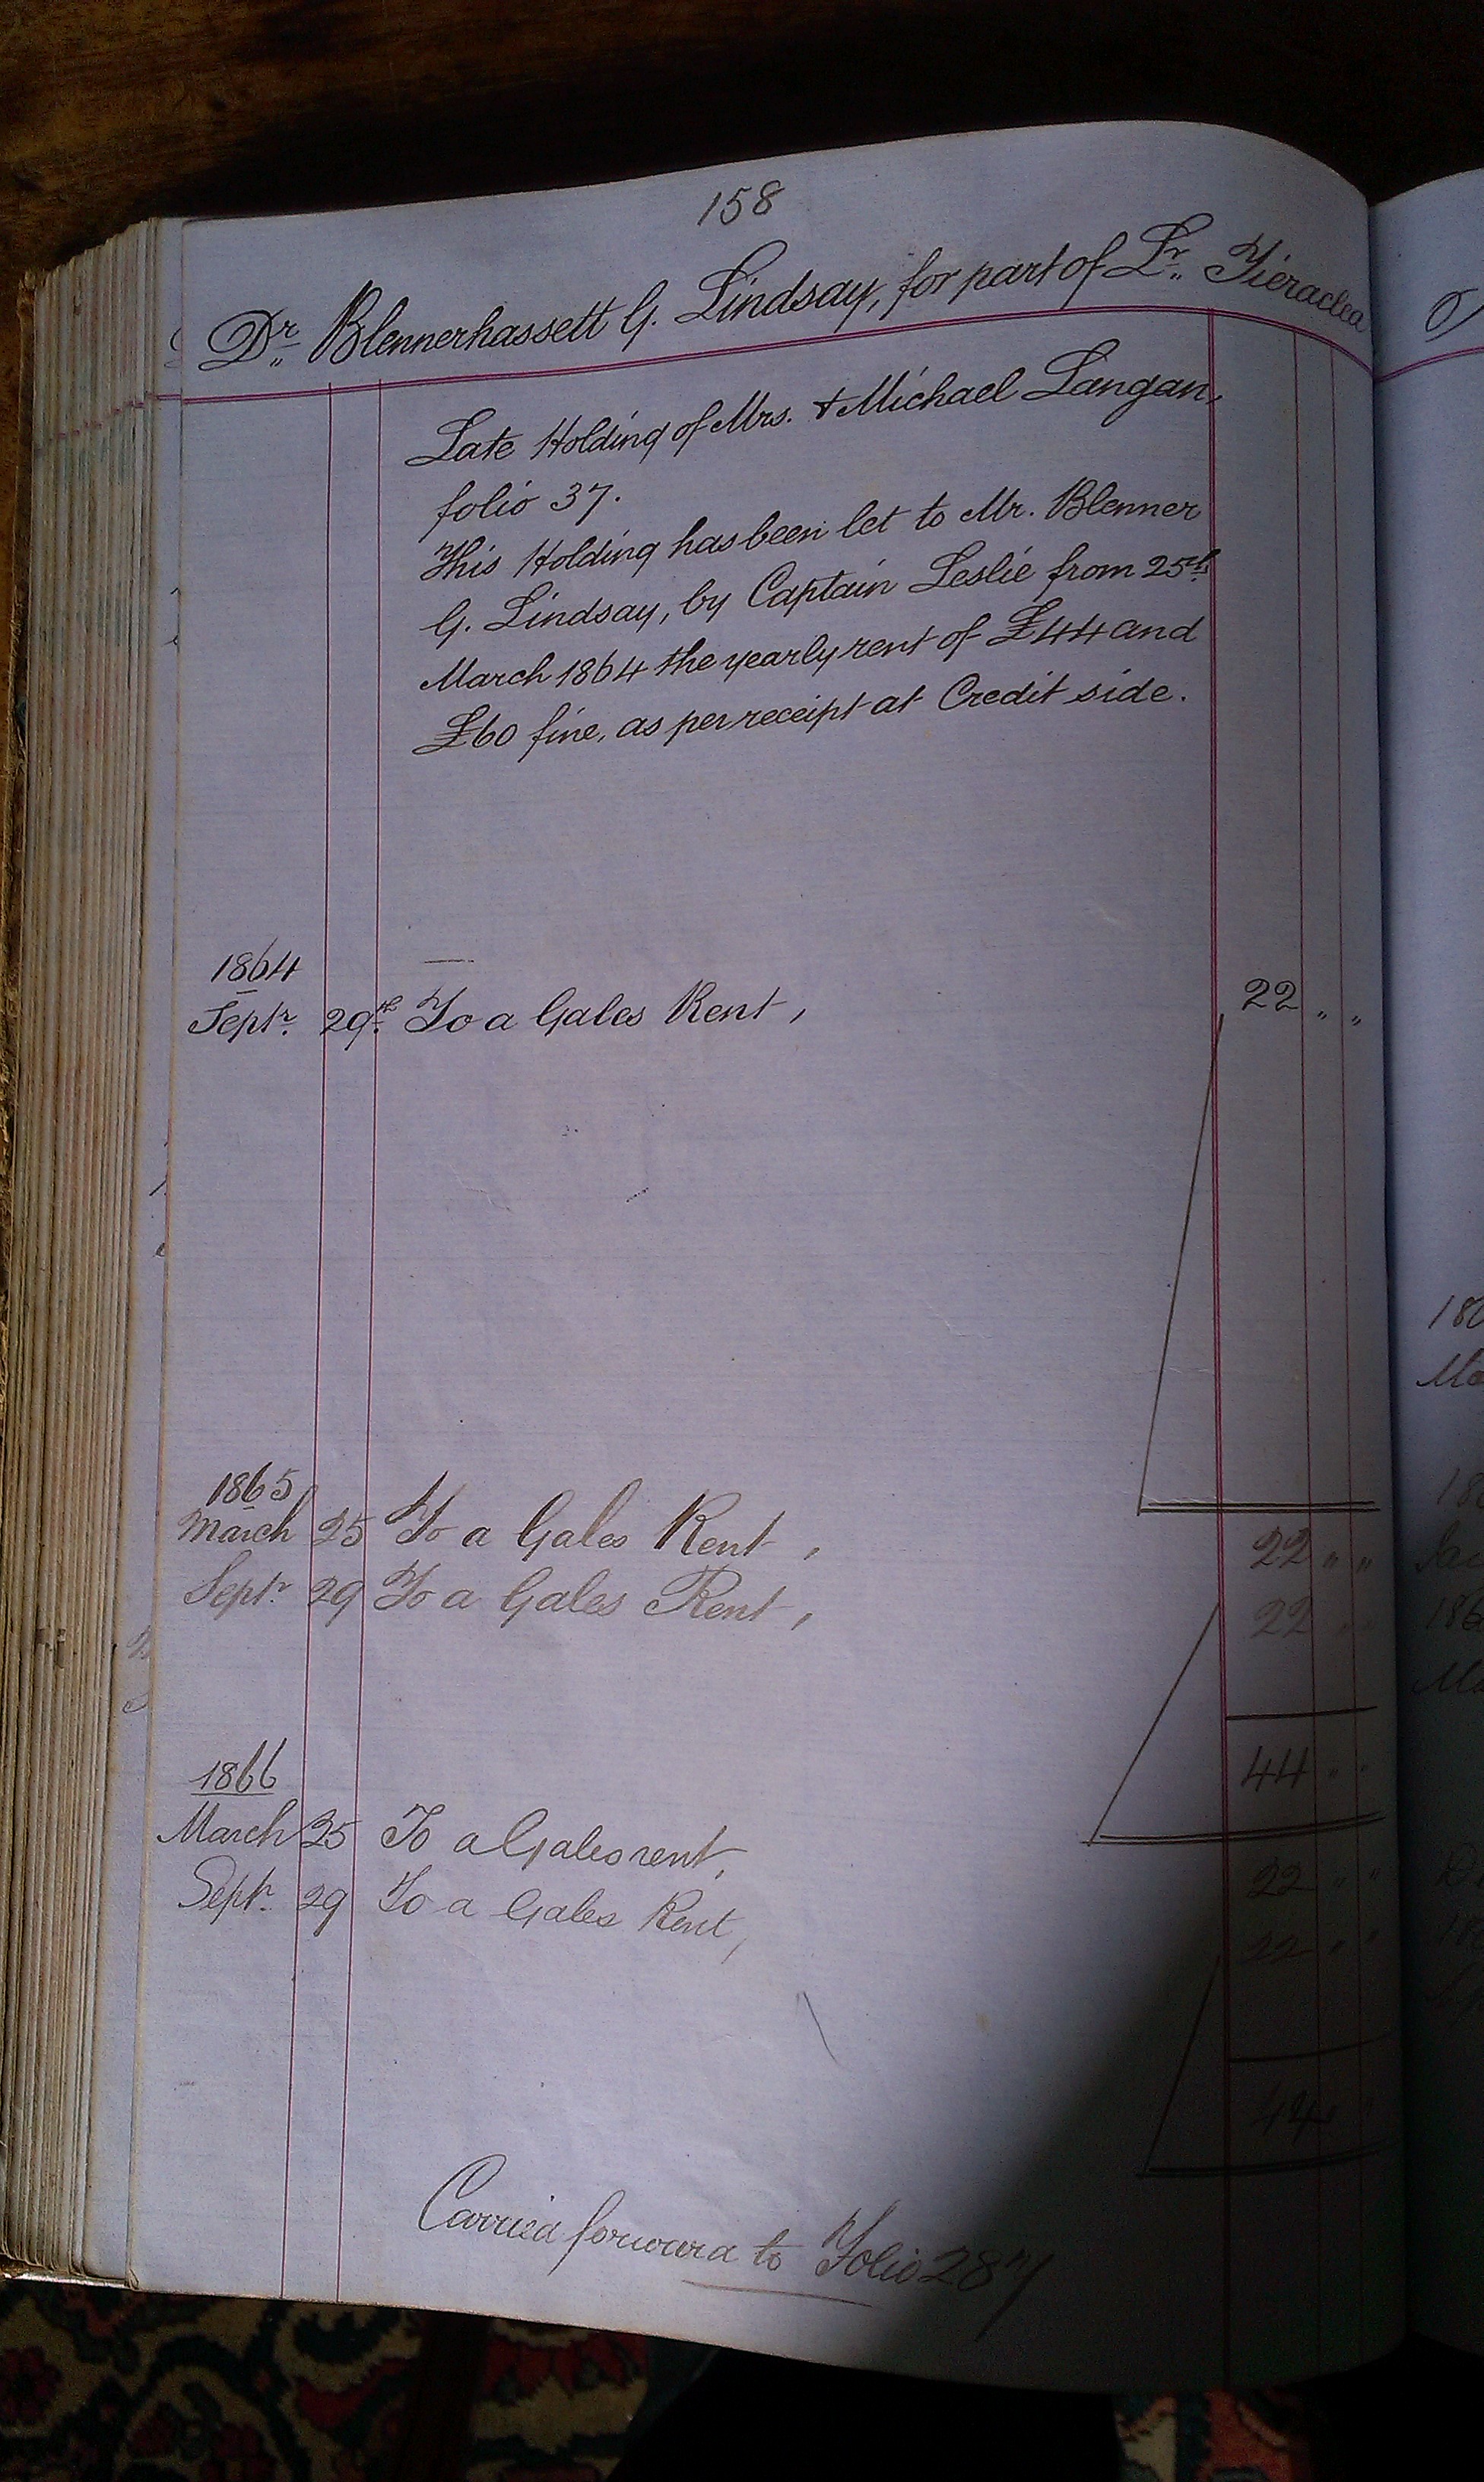 158
Dr Blennerhassett G. Lindsay, for part of Lr Tieraclea
Late Holding of Mrs. & Michael Langan,
folio 37.
This Holding has been let to Mr. Blenner
G. Lindsay, by Captain Leslie from 25th
March 1864 the yearly rent of £44 and
£60 fine, as per receipt at Credit side.
1864
Septr. 29th To a Gales Rent, 22 " "
1865
March 25 To a Gales Rent, 22 " "
Septr. 29 To a Gales Rent, 22 " "
44 " "
1866
March 25 To a Gales rent, 22 " "
Septr. 29 To a Gales Rent, 22 " "
44
Carried forward to Folio 287